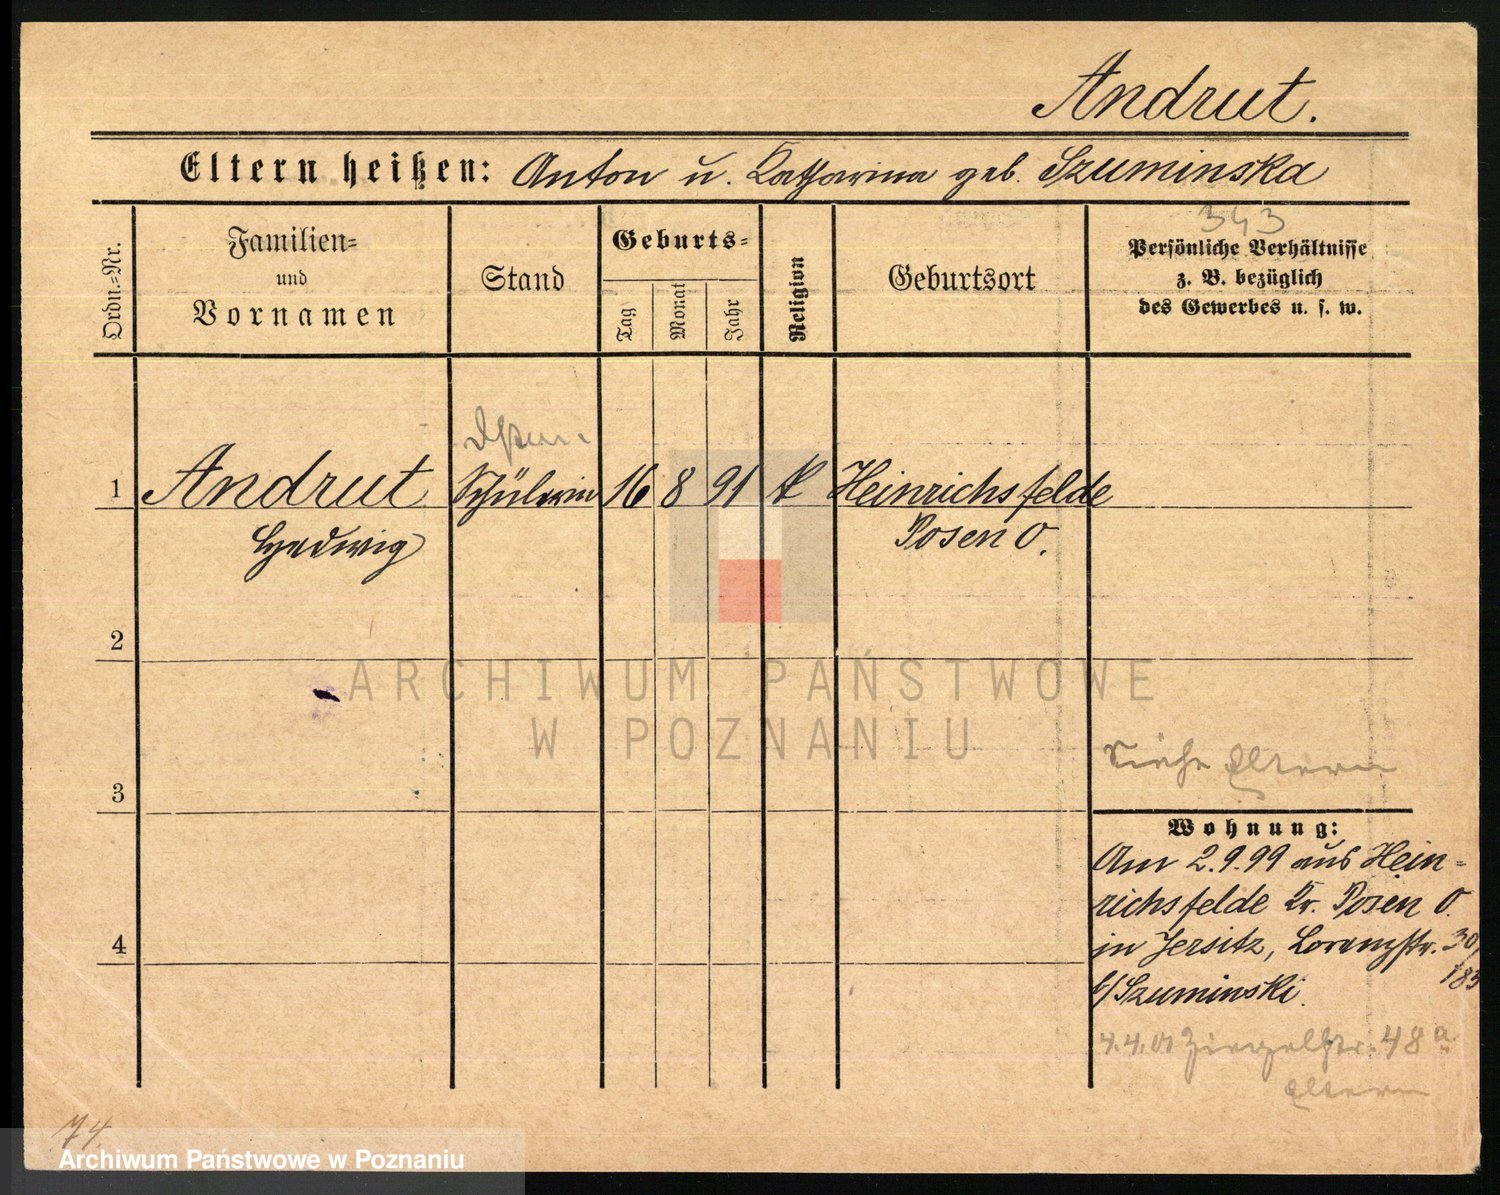 Andrut.
Eltern heißen: Anton u. Katharina geb. Szuminska
343
Ordn.-Nr.
Familien-
und
Vornamen
Stand
Geburts-
Tag
Monat
Jahr
Religion
Geburtsort
Persönliche Verhältnisse
z. B. bezüglich
des Gewerbes u. s. w.
1 Andrut Schülerin 16 8 91 k Heinrichsfelde
Hedwig Posen O.
2
ARCHIWUM PAŃSTWOWE
W POZNANIU
siehe Eltern
3
Wohnung:
Am 2.9.99 aus Hein-
richsfelde Kr. Posen O.
4
in Jersitz, Lorenzstr. 30/
183
b/Szuminski.
4.4.01 Ziegelstr. 48a
Eltern
74.
Archiwum Państwowe w Poznaniu